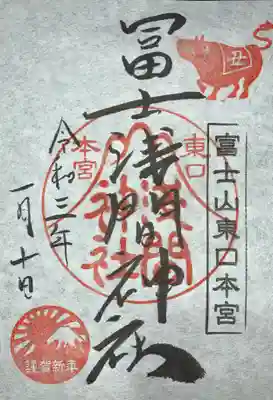 丑
富士山東口本宮
東口
本宮
冨士浅間神社
浅間
神社
令和三年
一月十日
謹賀新年